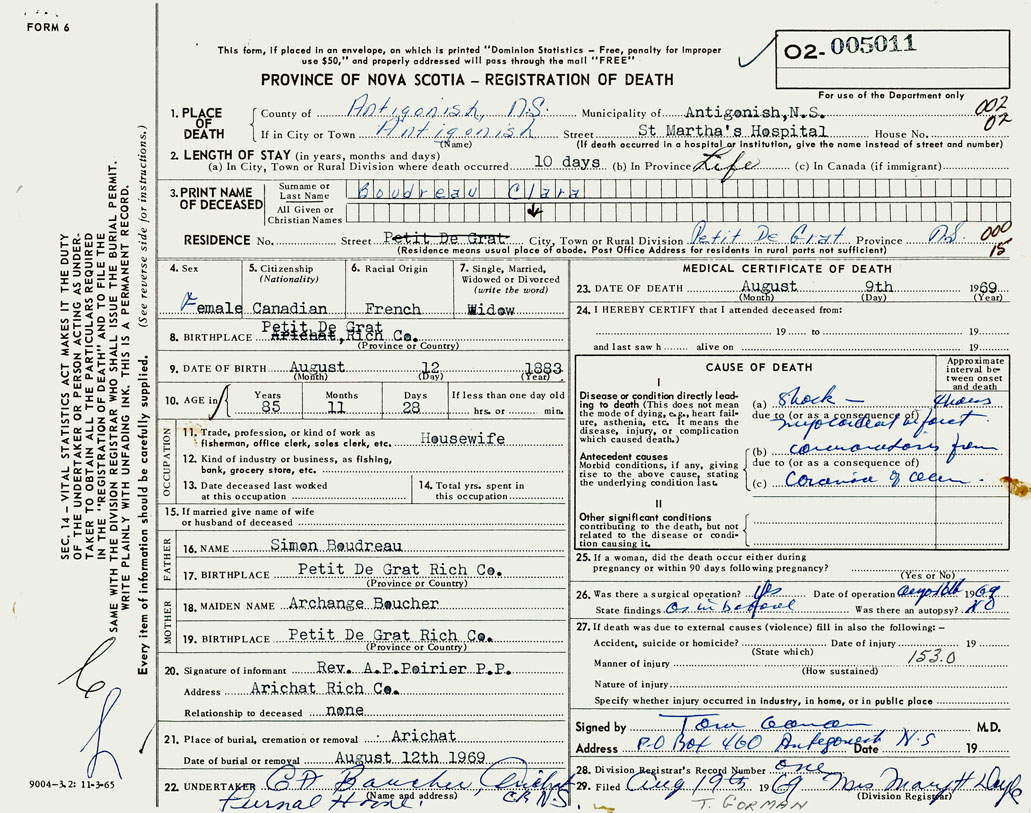 FORM 6
This form, if placed in an envelope, on which is printed "Dominion Statistics – Free, penalty for improper
use $50," and properly addressed will pass through the mail "FREE"
PROVINCE OF NOVA SCOTIA – REGISTRATION OF DEATH
O2-005011
For use of the Department only
1. PLACE OF DEATH
County of Antigonish, N.S. Municipality of Antigonish,N.S. 002
If in City or Town Antigonish Street St Martha's Hospital House No. 02
(Name) (If death occurred in a hospital or institution, give the name instead of street and number)
2. LENGTH OF STAY (in years, months and days)
(a) In City, Town or Rural Division where death occurred 10 days (b) In Province Life (c) In Canada (if immigrant)
3. PRINT NAME OF DECEASED
Surname or Last Name Boudreau Clara
All Given or Christian Names
RESIDENCE No. Street Petit De Grat City, Town or Rural Division Petit De Grat Province N.S 000
(Residence means usual place of abode. Post Office Address for residents in rural parts not sufficient) 15
4. Sex
Female
5. Citizenship
(Nationality)
Canadian
6. Racial Origin
French
7. Single, Married,
Widowed or Divorced
(write the word)
Widow
8. BIRTHPLACE Petit De Grat
Arichat,Rich Co.
(Province or Country)
9. DATE OF BIRTH August 12 1883
(Month) (Day) (Year)
10. AGE in
Years Months Days If less than one day old
85 11 28 hrs. or min.
OCCUPATION
11. Trade, profession, or kind of work as
fisherman, office clerk, sales clerk, etc. Housewife
12. Kind of industry or business, as fishing,
bank, grocery store, etc.
13. Date deceased last worked
at this occupation
14. Total yrs. spent in
this occupation
15. If married give name of wife
or husband of deceased
FATHER
16. NAME Simon Boudreau
17. BIRTHPLACE Petit De Grat Rich Co.
(Province or Country)
MOTHER
18. MAIDEN NAME Archange Boucher
19. BIRTHPLACE Petit De Grat Rich Co.
(Province or Country)
20. Signature of informant Rev. A.P.Poirier P.P.
Address Arichat Rich Co.
Relationship to deceased none
21. Place of burial, cremation or removal Arichat
Date of burial or removal August 12th 1969
22. UNDERTAKER C A Boucher, Arichat
(Name and address) N.S.
Home
MEDICAL CERTIFICATE OF DEATH
23. DATE OF DEATH August 9th 1969
(Month) (Day) (Year)
24. I HEREBY CERTIFY that I attended deceased from:
19 to 19
and last saw h alive on 19
CAUSE OF DEATH
Approximate
interval be-
tween onset
and death
I
Disease or condition directly lead-
ing to death (This does not mean
the mode of dying, e.g., heart fail-
ure, asthenia, etc. It means the
disease, injury, or complication
which caused death.)
(a) Shock –
due to (or as a consequence of)
Antecedent causes
Morbid conditions, if any, giving
rise to the above cause, stating
the underlying condition last.
(b) from
due to (or as a consequence of)
(c) of
II
Other significant conditions
contributing to the death, but not
related to the disease or condi-
tion causing it.
25. If a woman, did the death occur either during
pregnancy or within 90 days following pregnancy?
(Yes or No)
26. Was there a surgical operation? yes Date of operation 1969
State findings Was there an autopsy? NO
27. If death was due to external causes (violence) fill in also the following: –
Accident, suicide or homicide? Date of injury 19
(State which)
Manner of injury 153.0
(How sustained)
Nature of injury
Specify whether injury occurred in Industry, in home, or in public place
Signed by Tom Gorman M.D.
Address P.O Box 460 Antigonish N.S Date 19
28. Division Registrar's Record Number one
29. Filed Aug 19th 1969 Mrs Mary H Doyle
(Division Registrar)
T. GORMAN
SEC. 14 – VITAL STATISTICS ACT MAKES IT THE DUTY
OF THE UNDERTAKER OR PERSON ACTING AS UNDER-
TAKER TO OBTAIN ALL THE PARTICULARS REQUIRED
IN THE "REGISTRATION OF DEATH" AND TO FILE THE
SAME WITH THE DIVISION REGISTRAR WHO SHALL ISSUE THE BURIAL PERMIT.
WRITE PLAINLY WITH UNFADING INK. THIS IS A PERMANENT RECORD.
Every item of information should be carefully supplied. (See reverse side for instructions.)
9004-3.2: 11-3-65